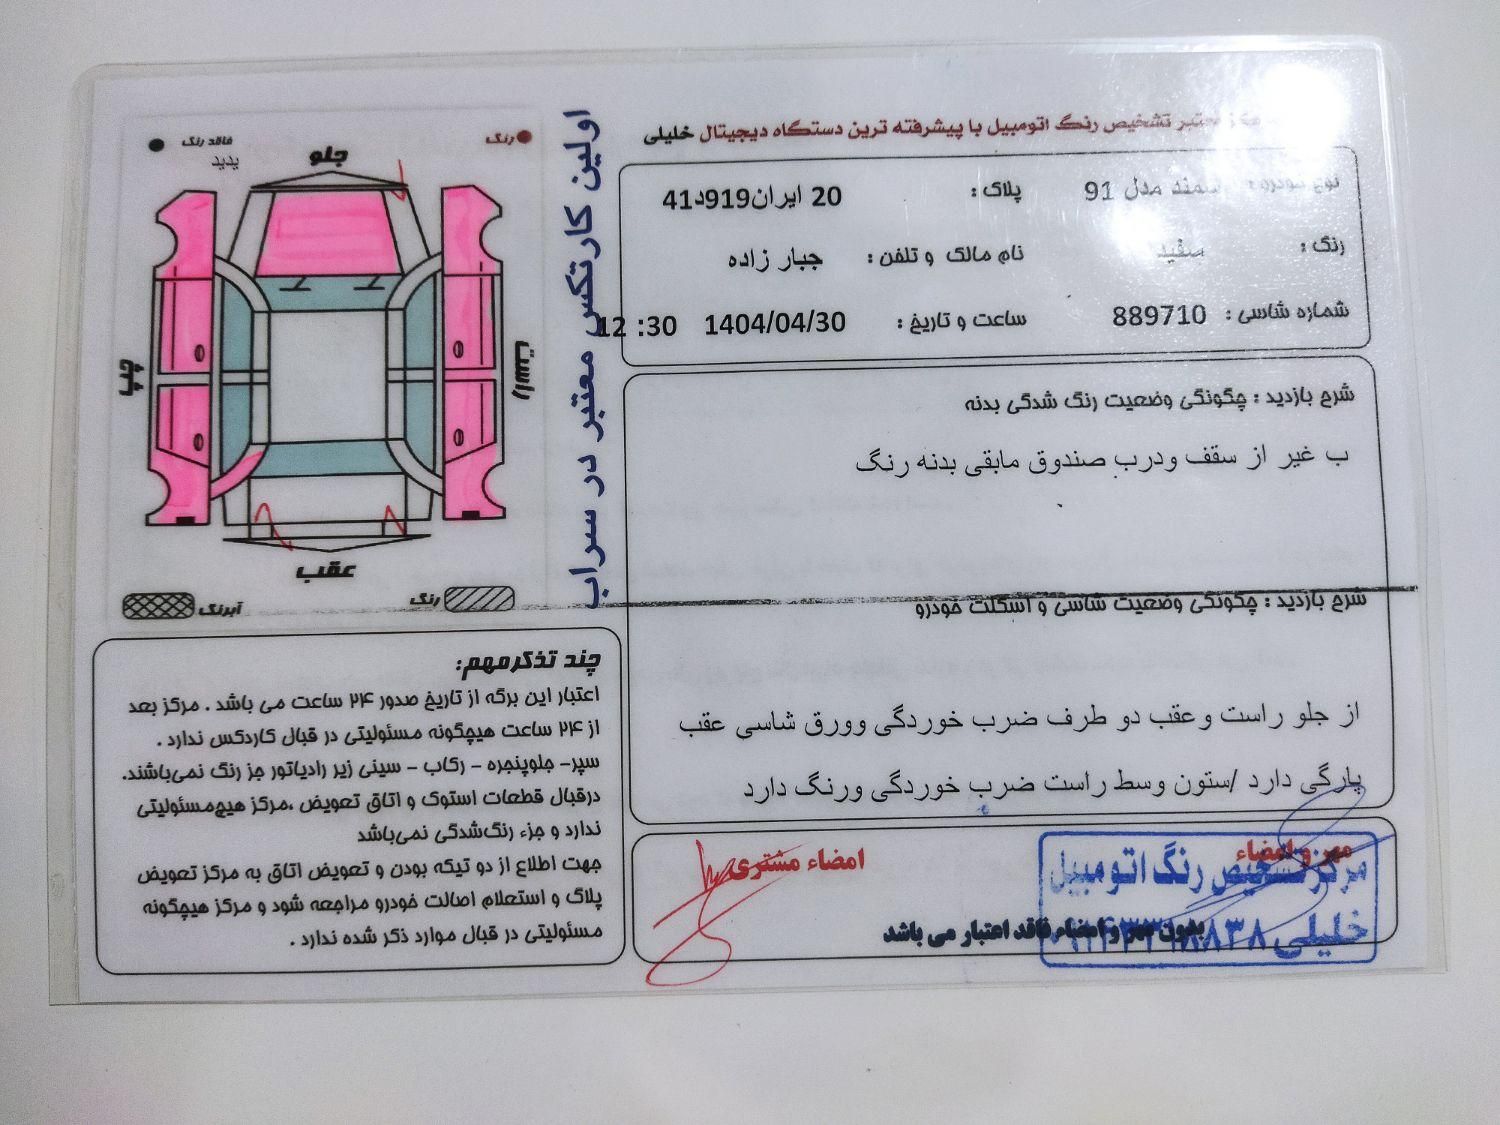 معتبر تشخیص رنگ اتومبیل با پیشرفته ترین دستگاه دیجیتال خلیلی
نوع خودرو : سمند مدل 91
پلاک : 20 ایران919د41
رنگ : سفید
نام مالک و تلفن : جبار زاده
شماره شاسی : 889710
ساعت و تاریخ : 1404/04/30 12 :30
شرح بازدید : چگونگی وضعیت رنگ شدگی بدنه
ب غیر از سقف ودرب صندوق مابقی بدنه رنگ
شرح بازدید : چگونگی وضعیت شاسی و اسکلت خودرو
از جلو راست وعقب دو طرف ضرب خوردگی وورق شاسی عقب
پارگی دارد /ستون وسط راست ضرب خوردگی ورنگ دارد
مهر و امضاء
امضاء مشتری
بدون مهر و امضاء فاقد اعتبار می باشد
مرکز تشخیص رنگ اتومبیل
خلیلی
اولین کارتکس معتبر در سراب
رنگ
فاقد رنگ
پدید
جلو
راست
چپ
عقب
رنگ
آبرنگ
چند تذکرمهم:
اعتبار این برگه از تاریخ صدور ۲۴ ساعت می باشد . مرکز بعد
از ۲۴ ساعت هیچگونه مسئولیتی در قبال کاردکس ندارد .
سپر- جلوپنجره - رکاب - سینی زیر رادیاتور جز رنگ نمی‌باشند.
درقبال قطعات استوک و اتاق تعویض ،مرکز هیچ‌مسئولیتی
ندارد و جزء رنگ‌شدگی نمی‌باشد
جهت اطلاع از دو تیکه بودن و تعویض اتاق به مرکز تعویض
پلاک و استعلام اصالت خودرو مراجعه شود و مرکز هیچگونه
مسئولیتی در قبال موارد ذکر شده ندارد .